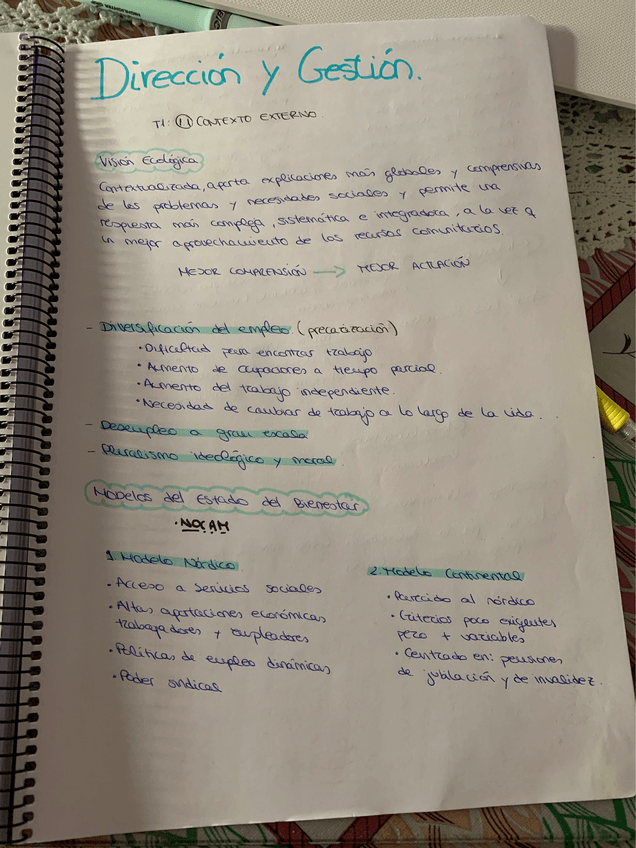 Dirección y Gestión.
T1: 1.1 CONTEXTO EXTERNO.
Visión Ecológica
Contextualizada, aporta explicaciones más globales y comprensivas
de los problemas y necesidades sociales y permite una
respuesta más compleja, sistemática e integradora, a la vez q
un mejor aprovechamiento de los recursos comunitarios.
MEJOR COMPRENSIÓN → MEJOR ACTUACIÓN
- Diversificación del empleo (precarización)
• Dificultad para encontrar trabajo
• Aumento de ocupaciones a tiempo parcial.
• Aumento del trabajo independiente.
• Necesidad de cambiar de trabajo a lo largo de la vida.
- Desempleo a gran escala
- Pluralismo ideológico y moral
Modelos del Estado del Bienestar
• NOCAM
1. Modelo Nórdico
• Acceso a servicios sociales
• Altas aportaciones económicas
trabajadores y empleadores
• Políticas de empleo dinámicas
• Poder sindical
2. Modelo Continental
• Parecido al nórdico
• Criterios poco exigentes
pero + variables
• Centrado en: pensiones
de jubilación y de invalidez.